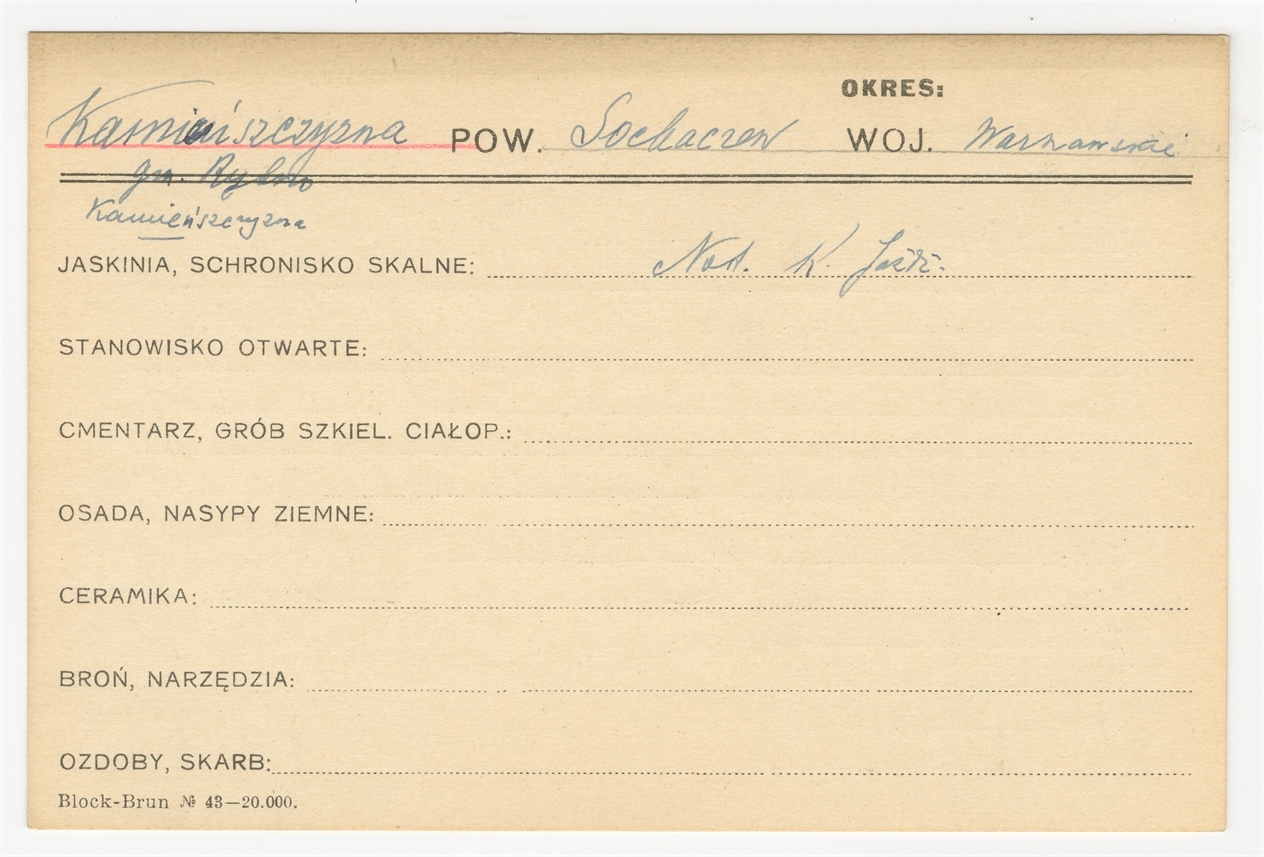 OKRES:
Kamieńszczyzna POW. Sochaczew WOJ. Warszawskie
gm. Rybno
Kamieńszczyzna
JASKINIA, SCHRONISKO SKALNE: Not. K. Jażdż.
STANOWISKO OTWARTE:
CMENTARZ, GRÓB SZKIEL. CIAŁOP.:
OSADA, NASYPY ZIEMNE:
CERAMIKA:
BROŃ, NARZĘDZIA:
OZDOBY, SKARB:
Block-Brun № 43—20.000.